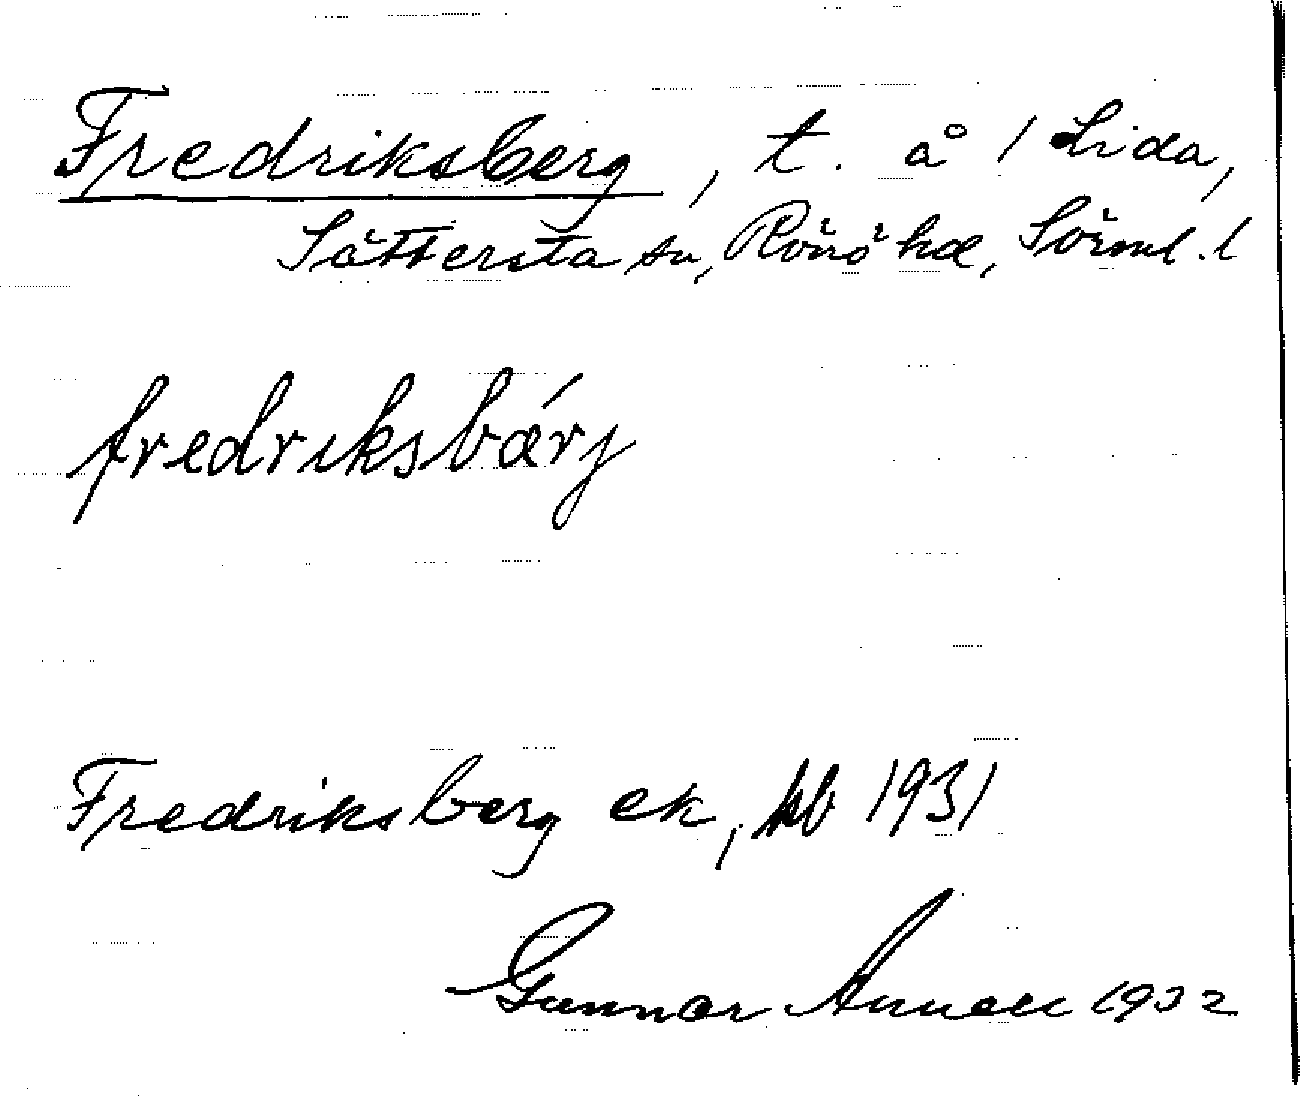 Fredriksberg, t. å 1 Lida,
Sättersta sn, Rönö hd, Sörml. l
fredriksbärj
Fredriksberg ek, kb 1931
Gunnar Annell 1932